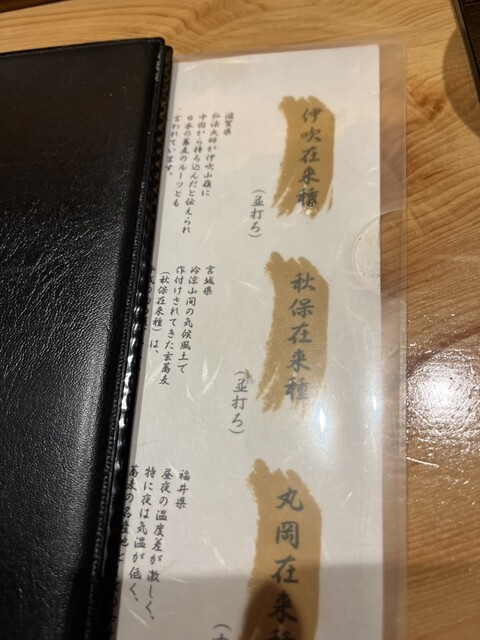 伊吹在来種
(並打ち)
滋賀県
弘法大師が伊吹山嶺に
中国から持ち込んだと伝えられ
日本の蕎麦のルーツとも
言われています。
秋保在来種
(並打ち)
宮城県
冷涼山間の気候風土で
作付けされてきた玄蕎麦
(秋保在来種)は、
丸岡在来種
福井県
昼夜の温度差が激しく、
特に夜は気温が低く、
蕎麦の名産地